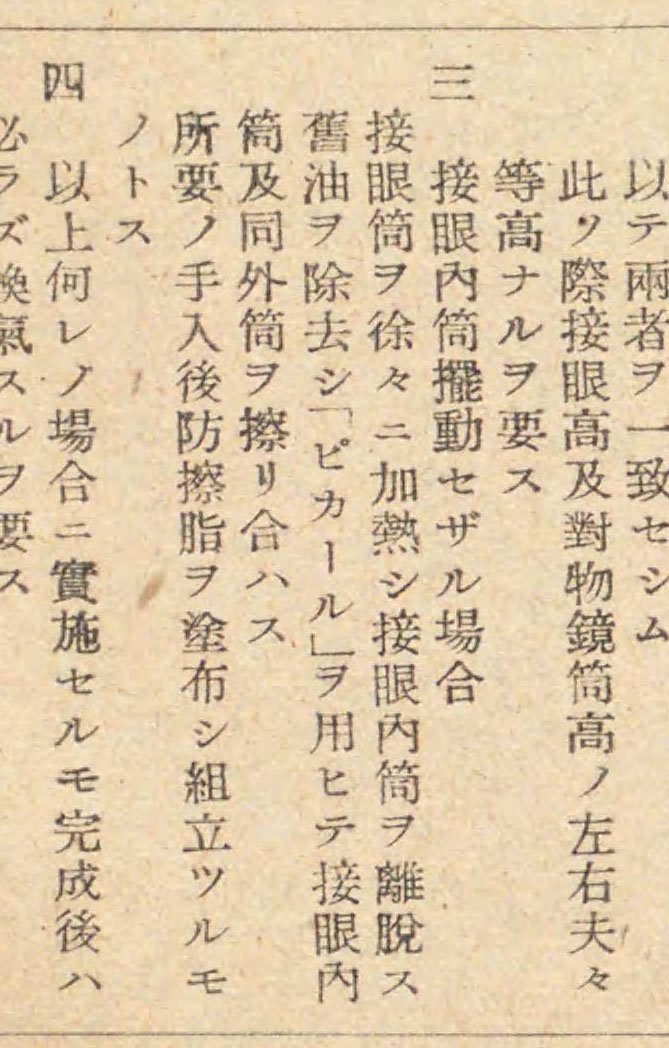 以テ兩者ヲ一致セシム
此ノ際接眼高及對物鏡筒高ノ左右夫々
等高ナルヲ要ス
三　接眼內筒擺動セザル場合
接眼筒ヲ徐々ニ加熱シ接眼內筒ヲ離脫ス
舊油ヲ除去シ「ピカール」ヲ用ヒテ接眼內
筒及同外筒ヲ擦リ合ハス
所要ノ手入後防擦脂ヲ塗布シ組立ツルモ
ノトス
四　以上何レノ場合ニ實施セルモ完成後ハ
必ラズ換氣スルヲ要ス